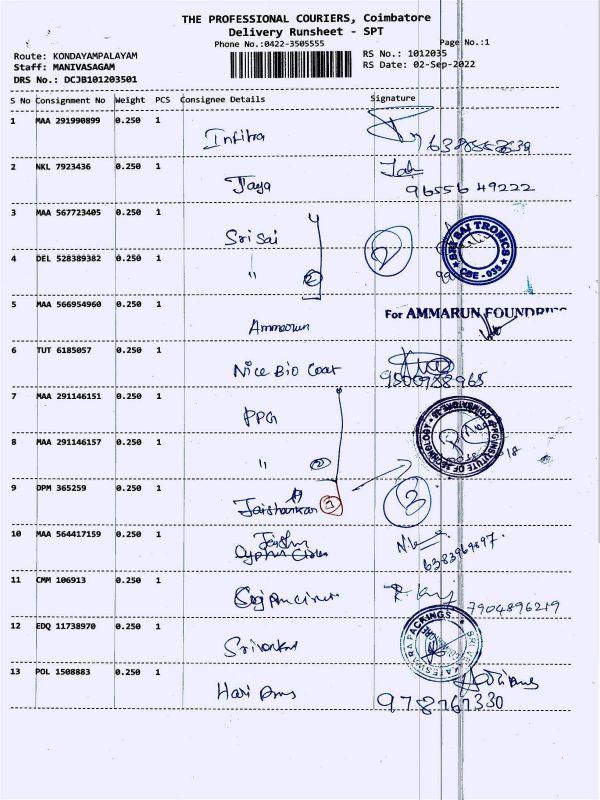 THE PROFESSIONAL COURIERS, Coimbatore
Delivery Runsheet - SPT
Phone No.:0422-3505555
Page No.:1
Route: KONDAYAMPALAYAM
RS No.: 1012035
Staff: MANIVASAGAM
RS Date: 02-Sep-2022
DRS No.: DCJB101203501
S No Consignment No Weight PCS Consignee Details Signature
1 MAA 291990899 0.250 1
2 NKL 7923436 0.250 1 Jaya
96556 49222
3 MAA 567723405 0.250 1 Sri Sai 2 SRI SAI TRONICS
4 DEL 528389382 0.250 1 " 2 CBE - 035
5 MAA 566954960 0.250 1 Ammarun For AMMARUN FOUNDRIES
6 TUT 6185057 0.250 1 Nice Bio Coat
9500788965
7 MAA 291146151 0.250 1 PPG
8 MAA 291146157 0.250 1 " 2
9 DPM 365259 0.250 1 Jaishankar 3 3
10 MAA 564417159 0.250 1
6383969897
11 CMM 106913 0.250 1
7904896219
12 EDQ 11738970 0.250 1
13 POL 1508883 0.250 1 Hari
978767330